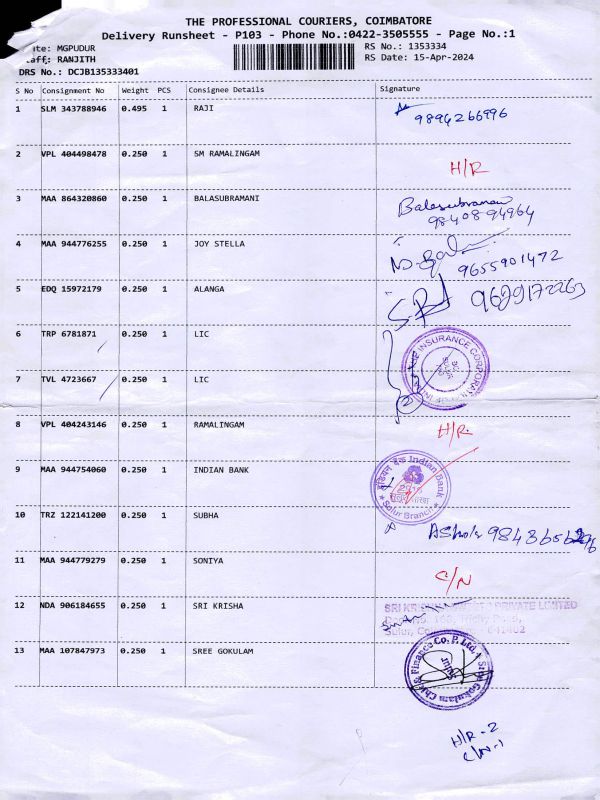 THE PROFESSIONAL COURIERS, COIMBATORE
Delivery Runsheet - P103 - Phone No.:0422-3505555 - Page No.:1
MGPUDUR RS No.: 1353334
RANJITH RS Date: 15-Apr-2024
DRS No.: DCJB135333401
S No Consignment No Weight PCS Consignee Details Signature
1 SLM 343788946 0.495 1 RAJI 9894266996
2 VPL 404498478 0.250 1 SM RAMALINGAM H/R
3 MAA 864320860 0.250 1 BALASUBRAMANI Balasubramani
9840894964
4 MAA 944776255 0.250 1 JOY STELLA 9655901472
5 EDQ 15972179 0.250 1 ALANGA
6 TRP 6781871 0.250 1 LIC INSURANCE CORPORATION
7 TVL 4723667 0.250 1 LIC
8 VPL 404243146 0.250 1 RAMALINGAM H/R
9 MAA 944754060 0.250 1 INDIAN BANK इंडियन बैंक Indian Bank
Sulur Branch
10 TRZ 122141200 0.250 1 SUBHA Ashok
11 MAA 944779279 0.250 1 SONIYA C/N
12 NDA 906184655 0.250 1 SRI KRISHA SRI PRIVATE LIMITED
Sulur, 641402
13 MAA 107847973 0.250 1 SREE GOKULAM Sree Gokulam Chit & Finance Co. P. Ltd.
H/R-2
C/N-1